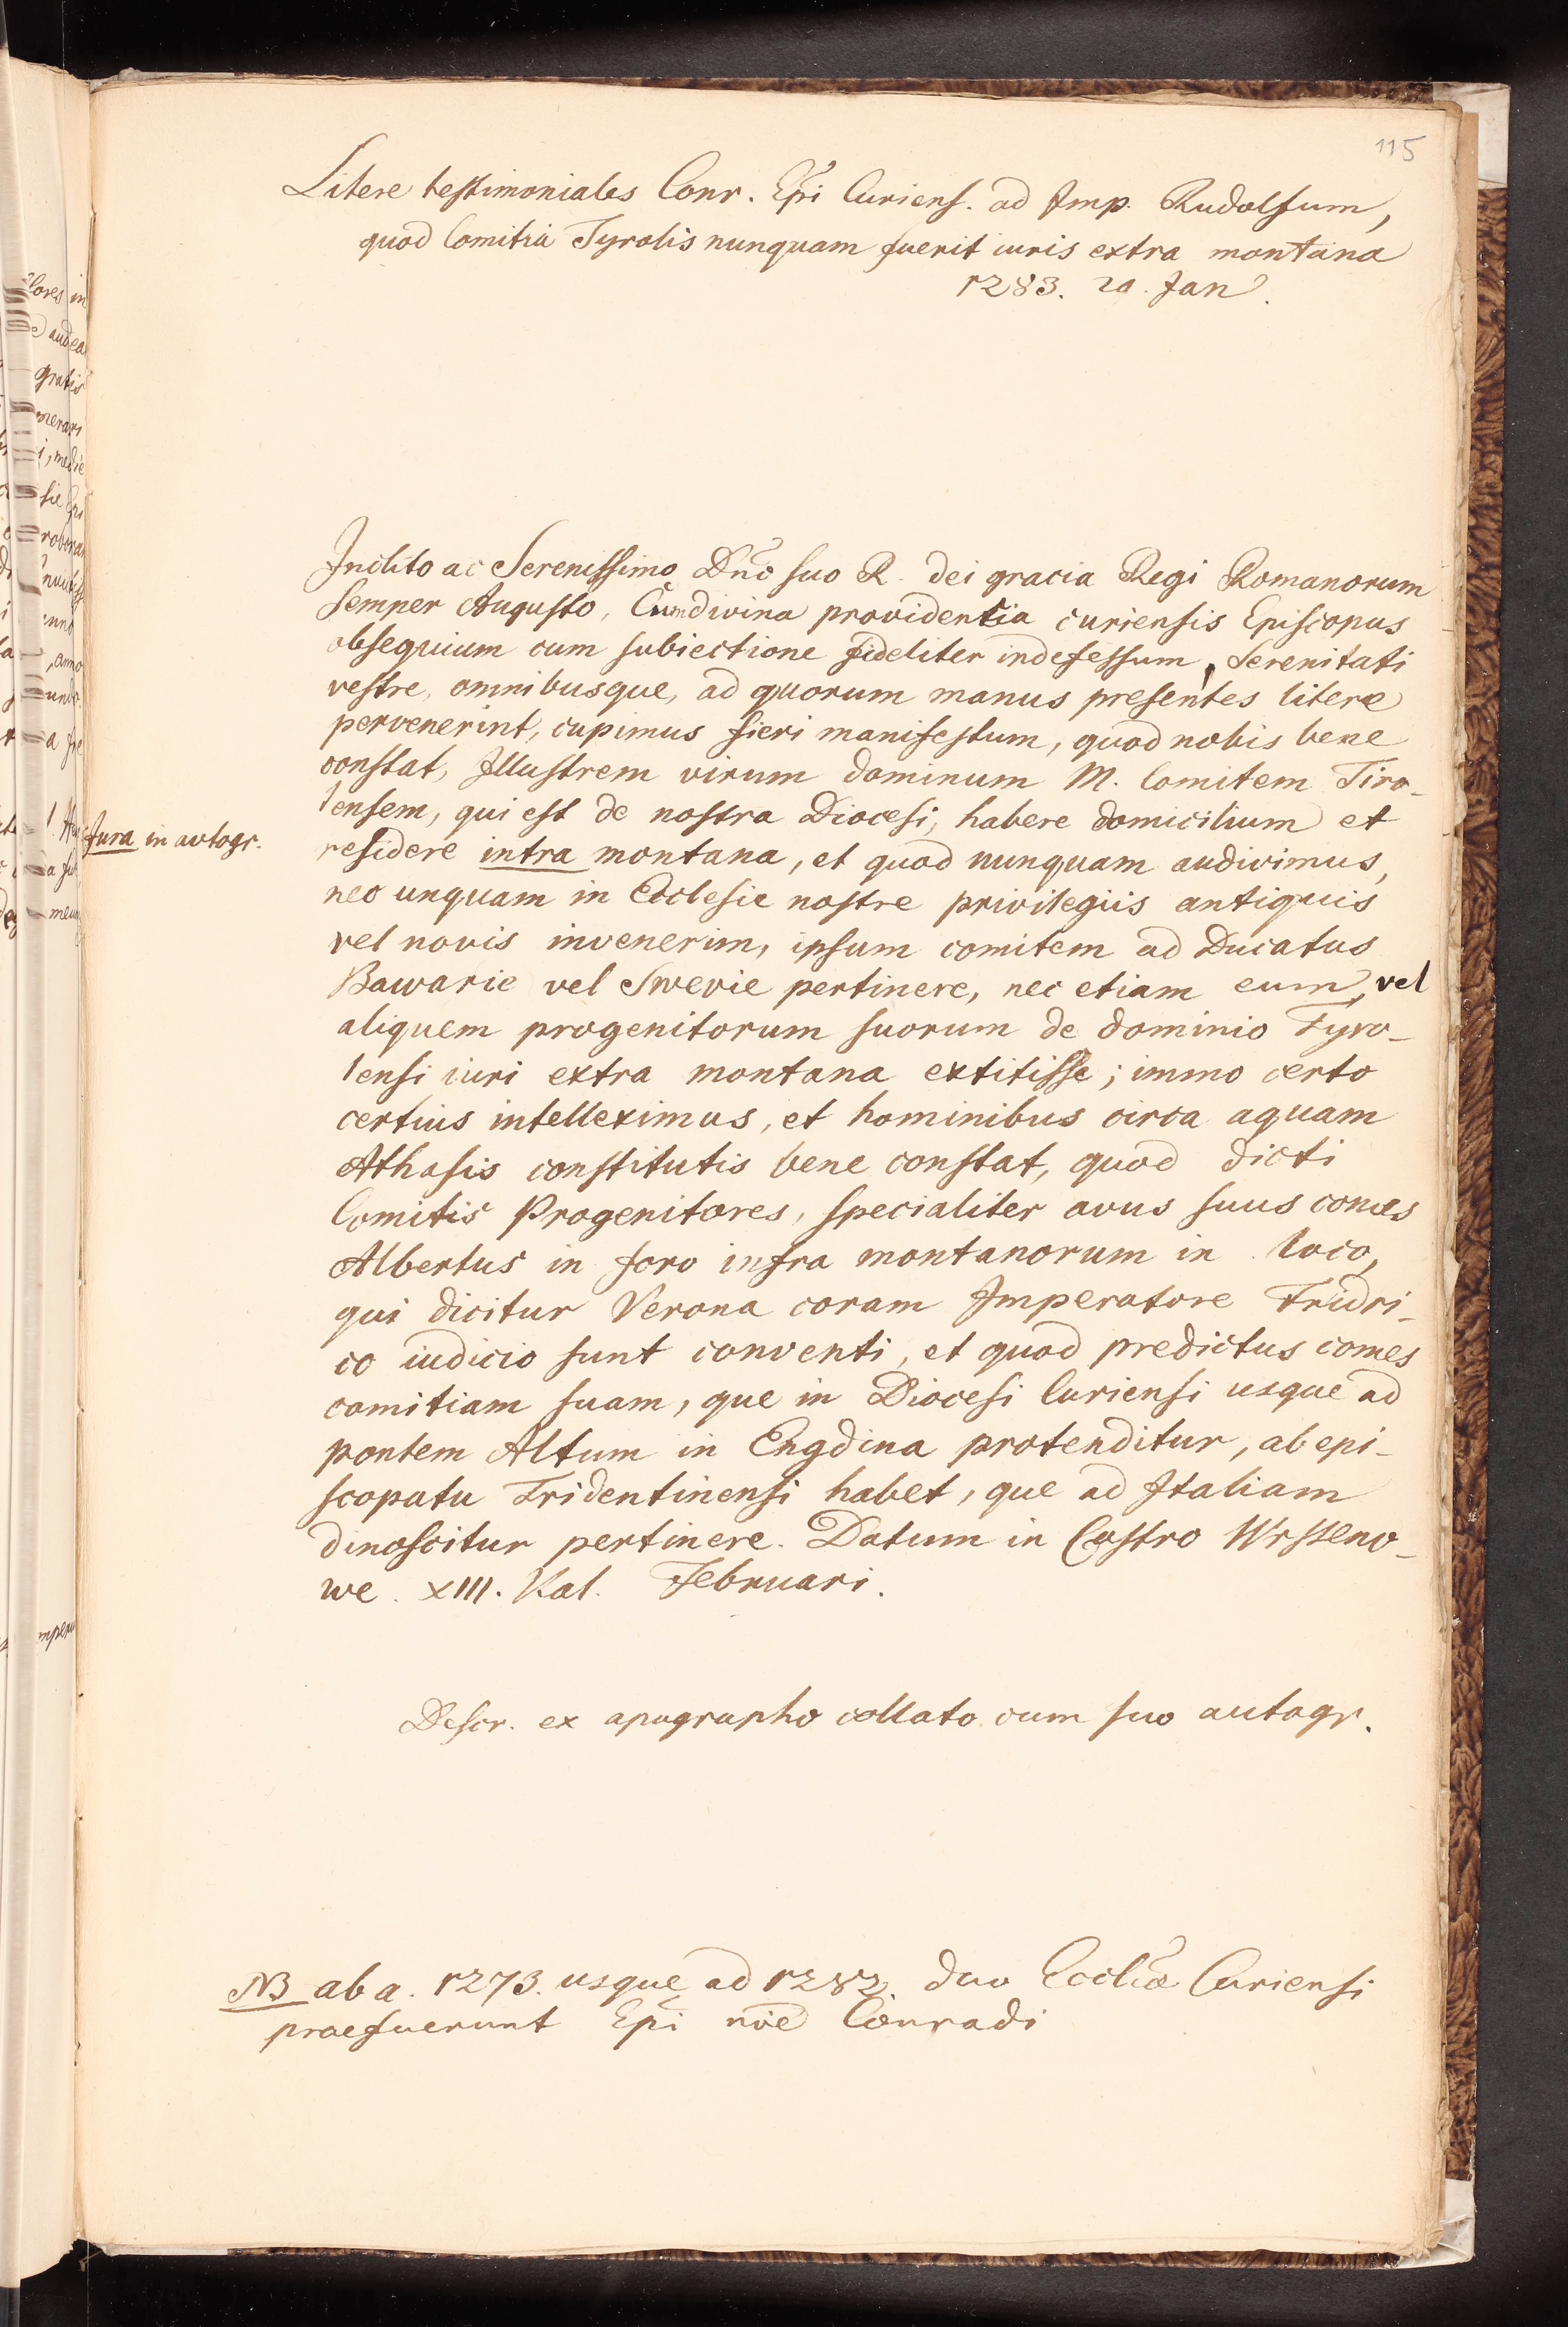 115
Litere testimoniales Conr. Epi Curiens. ad Imp. Rudolfum,
quod Comitia Tyrolis nunquam fuerit iuris extra montana
1283. 20. Jan.
Inclito ac Serenissimo Dno suo R. dei gracia Regi Romanorum
Semper Augusto, divina providentia curiensis Episcopus
obsequium cum subiectione fideliter indefessum, Serenitati
vestre, omnibusque, ad quorum manus presentes litere
pervenerint, cupimus fieri manifestum, quod nobis bene
constat, Illustrem virum dominum M. Comitem Tiro-
lensem, qui est de nostra Diocesi, habere domicilium et
Jura in autogr.
residere intra montana, et quod nunquam audivimus,
nec unquam in Ecclesie nostre privilegiis antiquis
vel novis invenerim, ipsum comitem ad Ducatus
Bawarie vel Swevie pertinere, nec etiam eum, vel
aliquem progenitorum suorum de dominio Tyro-
lensi iuri extra montana extitisse; immo certo
certius intelleximus, et hominibus circa aquam
Athasis constitutis bene constat, quod dicti
Comitis Progenitores, specialiter avus suus comes
Albertus in foro infra montanorum in loco,
qui dicitur Verona coram Imperatore Fridri-
co iudicio sunt conventi, et quod predictus comes
comitiam suam, que in Diocesi Curiensi usque ad
pontem Altum in Engdina protenditur, ab epi-
scopatu Tridentinensi habet, que ad Italiam
dinoscitur pertinere. Datum in Castro Wrsteno-
we. XIII. Kal. Februari.
Descr. ex apographo collato cum suo autogr.
NB ab a. 1273. usque ad 1282. duo Eccliae Curiensi
praefuerunt Epi noie Conradi